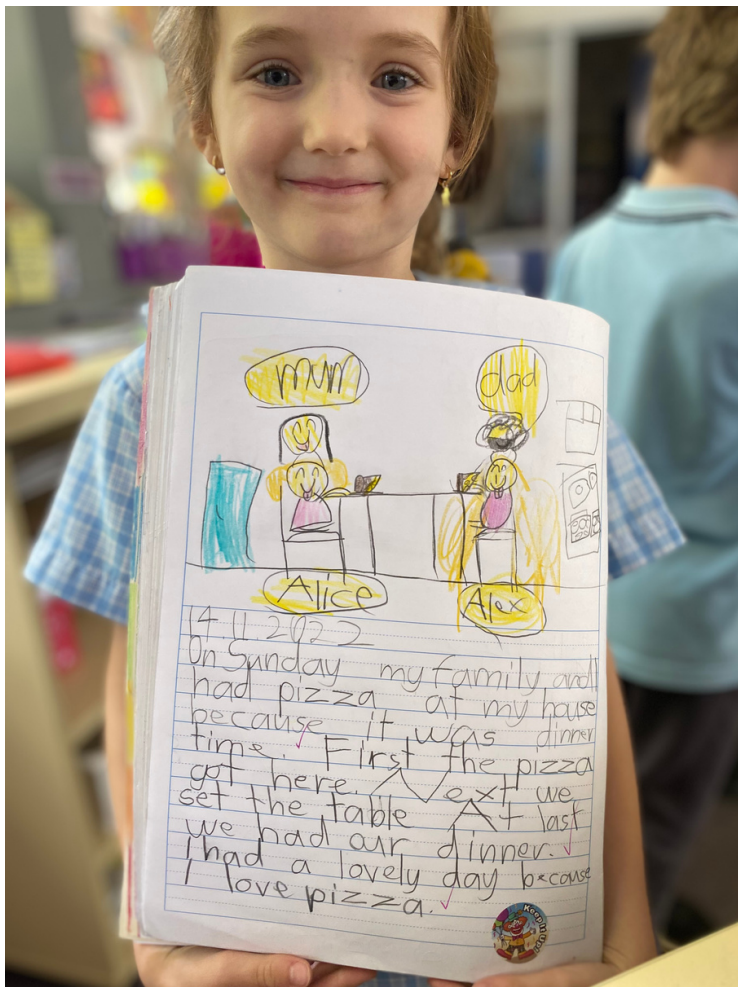 mum
dad
Alice
Alex
14.11.2022
On Sunday my family and I
had pizza at my house
because it was dinner
time. First the pizza
got here. Next we
set the table At last
we had our dinner.
I had a lovely day because
I love pizza.
Keep it Up!